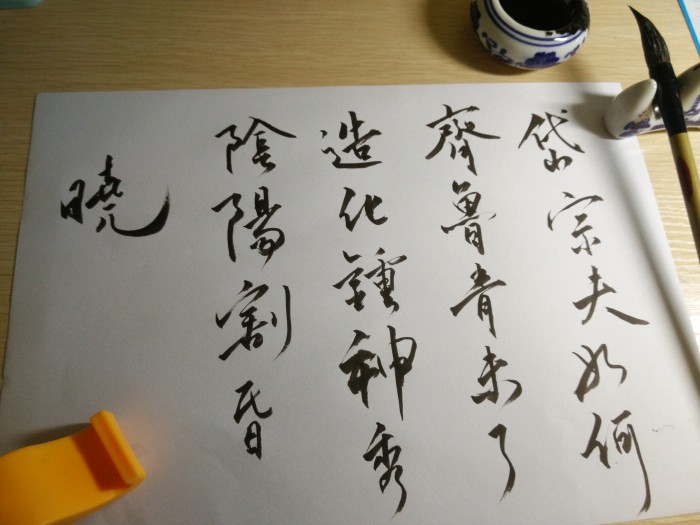 岱宗夫如何
齊魯青未了
造化鍾神秀
陰陽割昏
曉